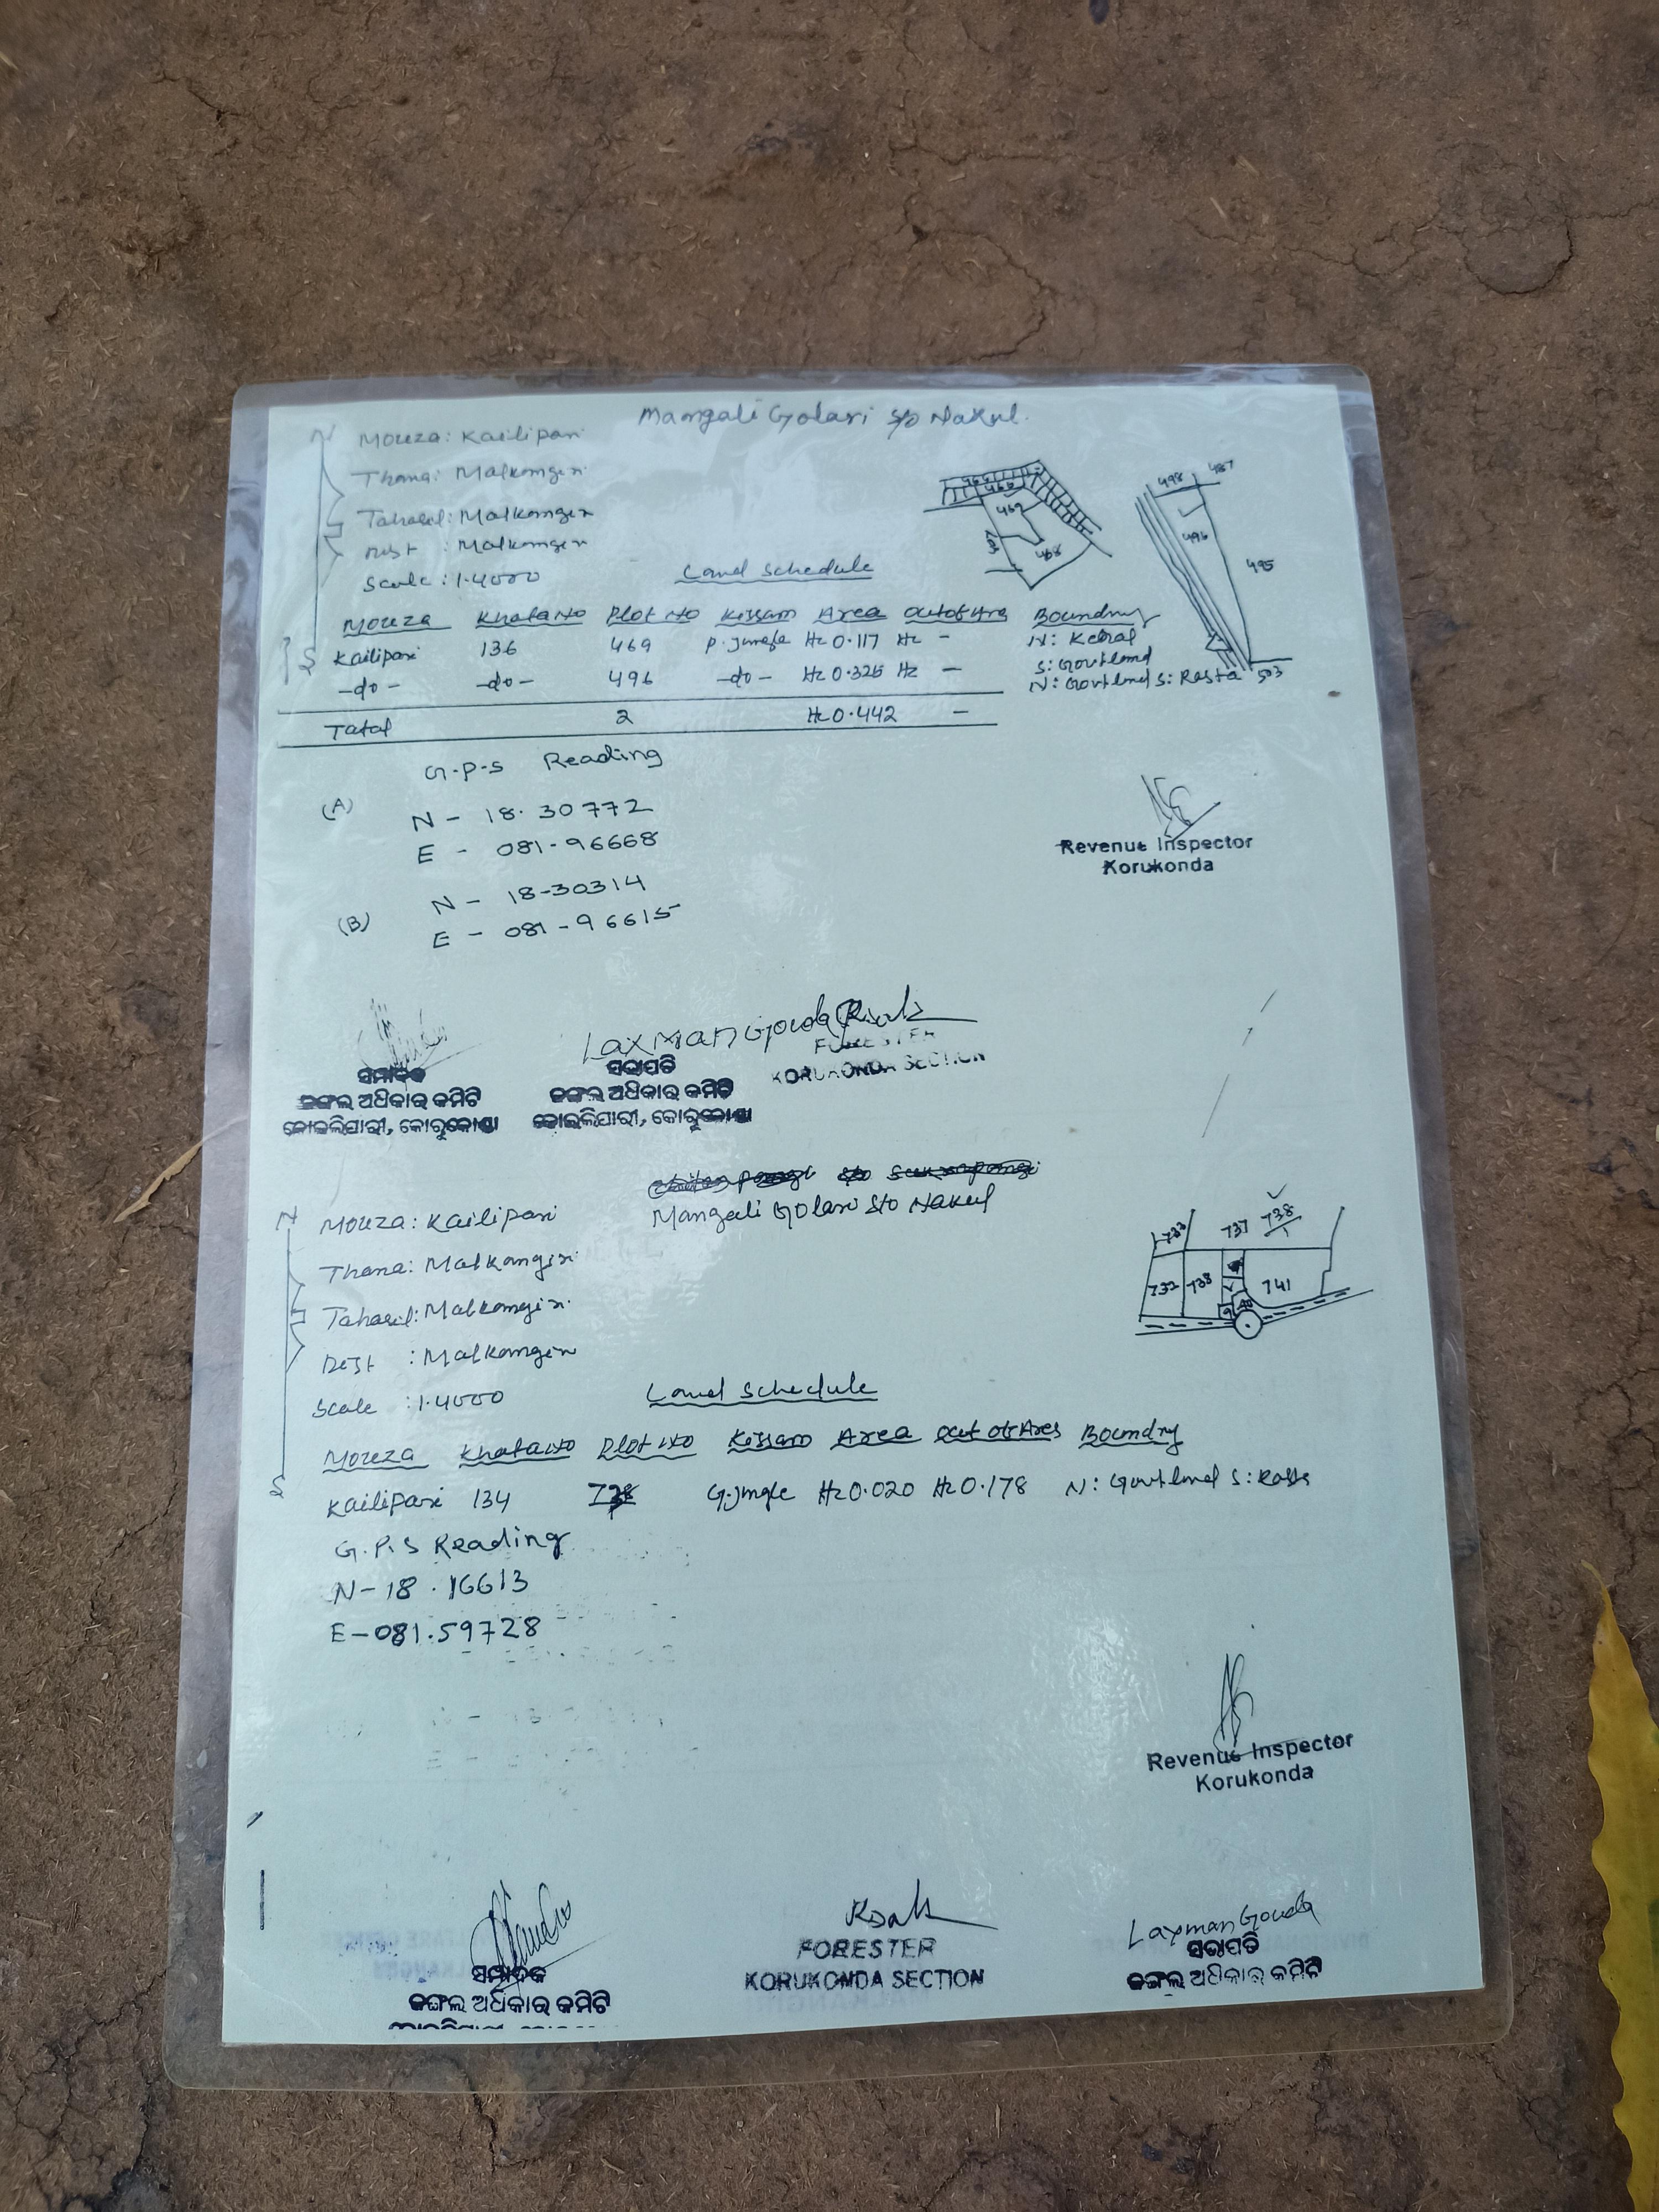 Mangali Golari S/o Nakul.
N
Mouza: Kailipari
Thana: Malkangiri
Tahasil: Malkangiri
Dist : Malkangiri
Scale : 1.4000
S
466
469
468
498
487
496
495
503
Land Schedule
Mouza Khata No Plot No Kissam Area Out of Area Boundry
Kailipari 136 469 P. Jungle Hc 0.117 Hc -
S: Govt land
-do- -do- 496 -do- Hc 0.325 Hc - N: Govt land S: Rasta
Total 2 Hc 0.442 -
G.P.S Reading
(A) N - 18.30772
E - 081-96668
(B) N - 18-30314
E - 081-96615
Revenue Inspector
Korukonda
Laxman Gouda
FORESTER
KORUKONDA SECTION
ସମ୍ପାଦକ
ଜଙ୍ଗଲ ଅଧିକାର କମିଟି
କୋଇଲିପାରୀ, କୋରୁକୋଣ୍ଡା
ସଭାପତି
ଜଙ୍ଗଲ ଅଧିକାର କମିଟି
କୋଇଲିପାରୀ, କୋରୁକୋଣ୍ଡା
Mangali Golari S/o Nakul
N
Mouza: Kailipari
Thana: Malkangiri
Tahasil: Malkangiri
Dist : Malkangiri
Scale : 1.4000
S
733
737
738/1
732
738
741
Land Schedule
Mouza Khata No Plot No Kissam Area Out of Area Boundry
Kailipari 134 738 G. Jungle Hc 0.020 Hc 0.178 N: Govt land S: Rasta
G.P.S Reading
N-18.16613
E-081.59728
Revenue Inspector
Korukonda
ସମ୍ପାଦକ
ଜଙ୍ଗଲ ଅଧିକାର କମିଟି
FORESTER
KORUKONDA SECTION
Laxman Gouda
ସଭାପତି
ଜଙ୍ଗଲ ଅଧିକାର କମିଟି